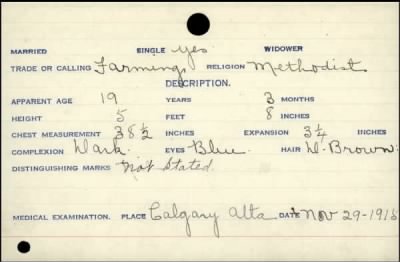 MARRIED SINGLE Yes WIDOWER
TRADE OR CALLING Farming RELIGION Methodist
DESCRIPTION.
APPARENT AGE 19 YEARS 3 MONTHS
HEIGHT 5 FEET 8 INCHES
CHEST MEASUREMENT 38½ INCHES EXPANSION 3¼ INCHES
COMPLEXION Dark. EYES Blue. HAIR D. Brown.
DISTINGUISHING MARKS Not Stated.
MEDICAL EXAMINATION. PLACE Calgary Alta DATE Nov 29-1915